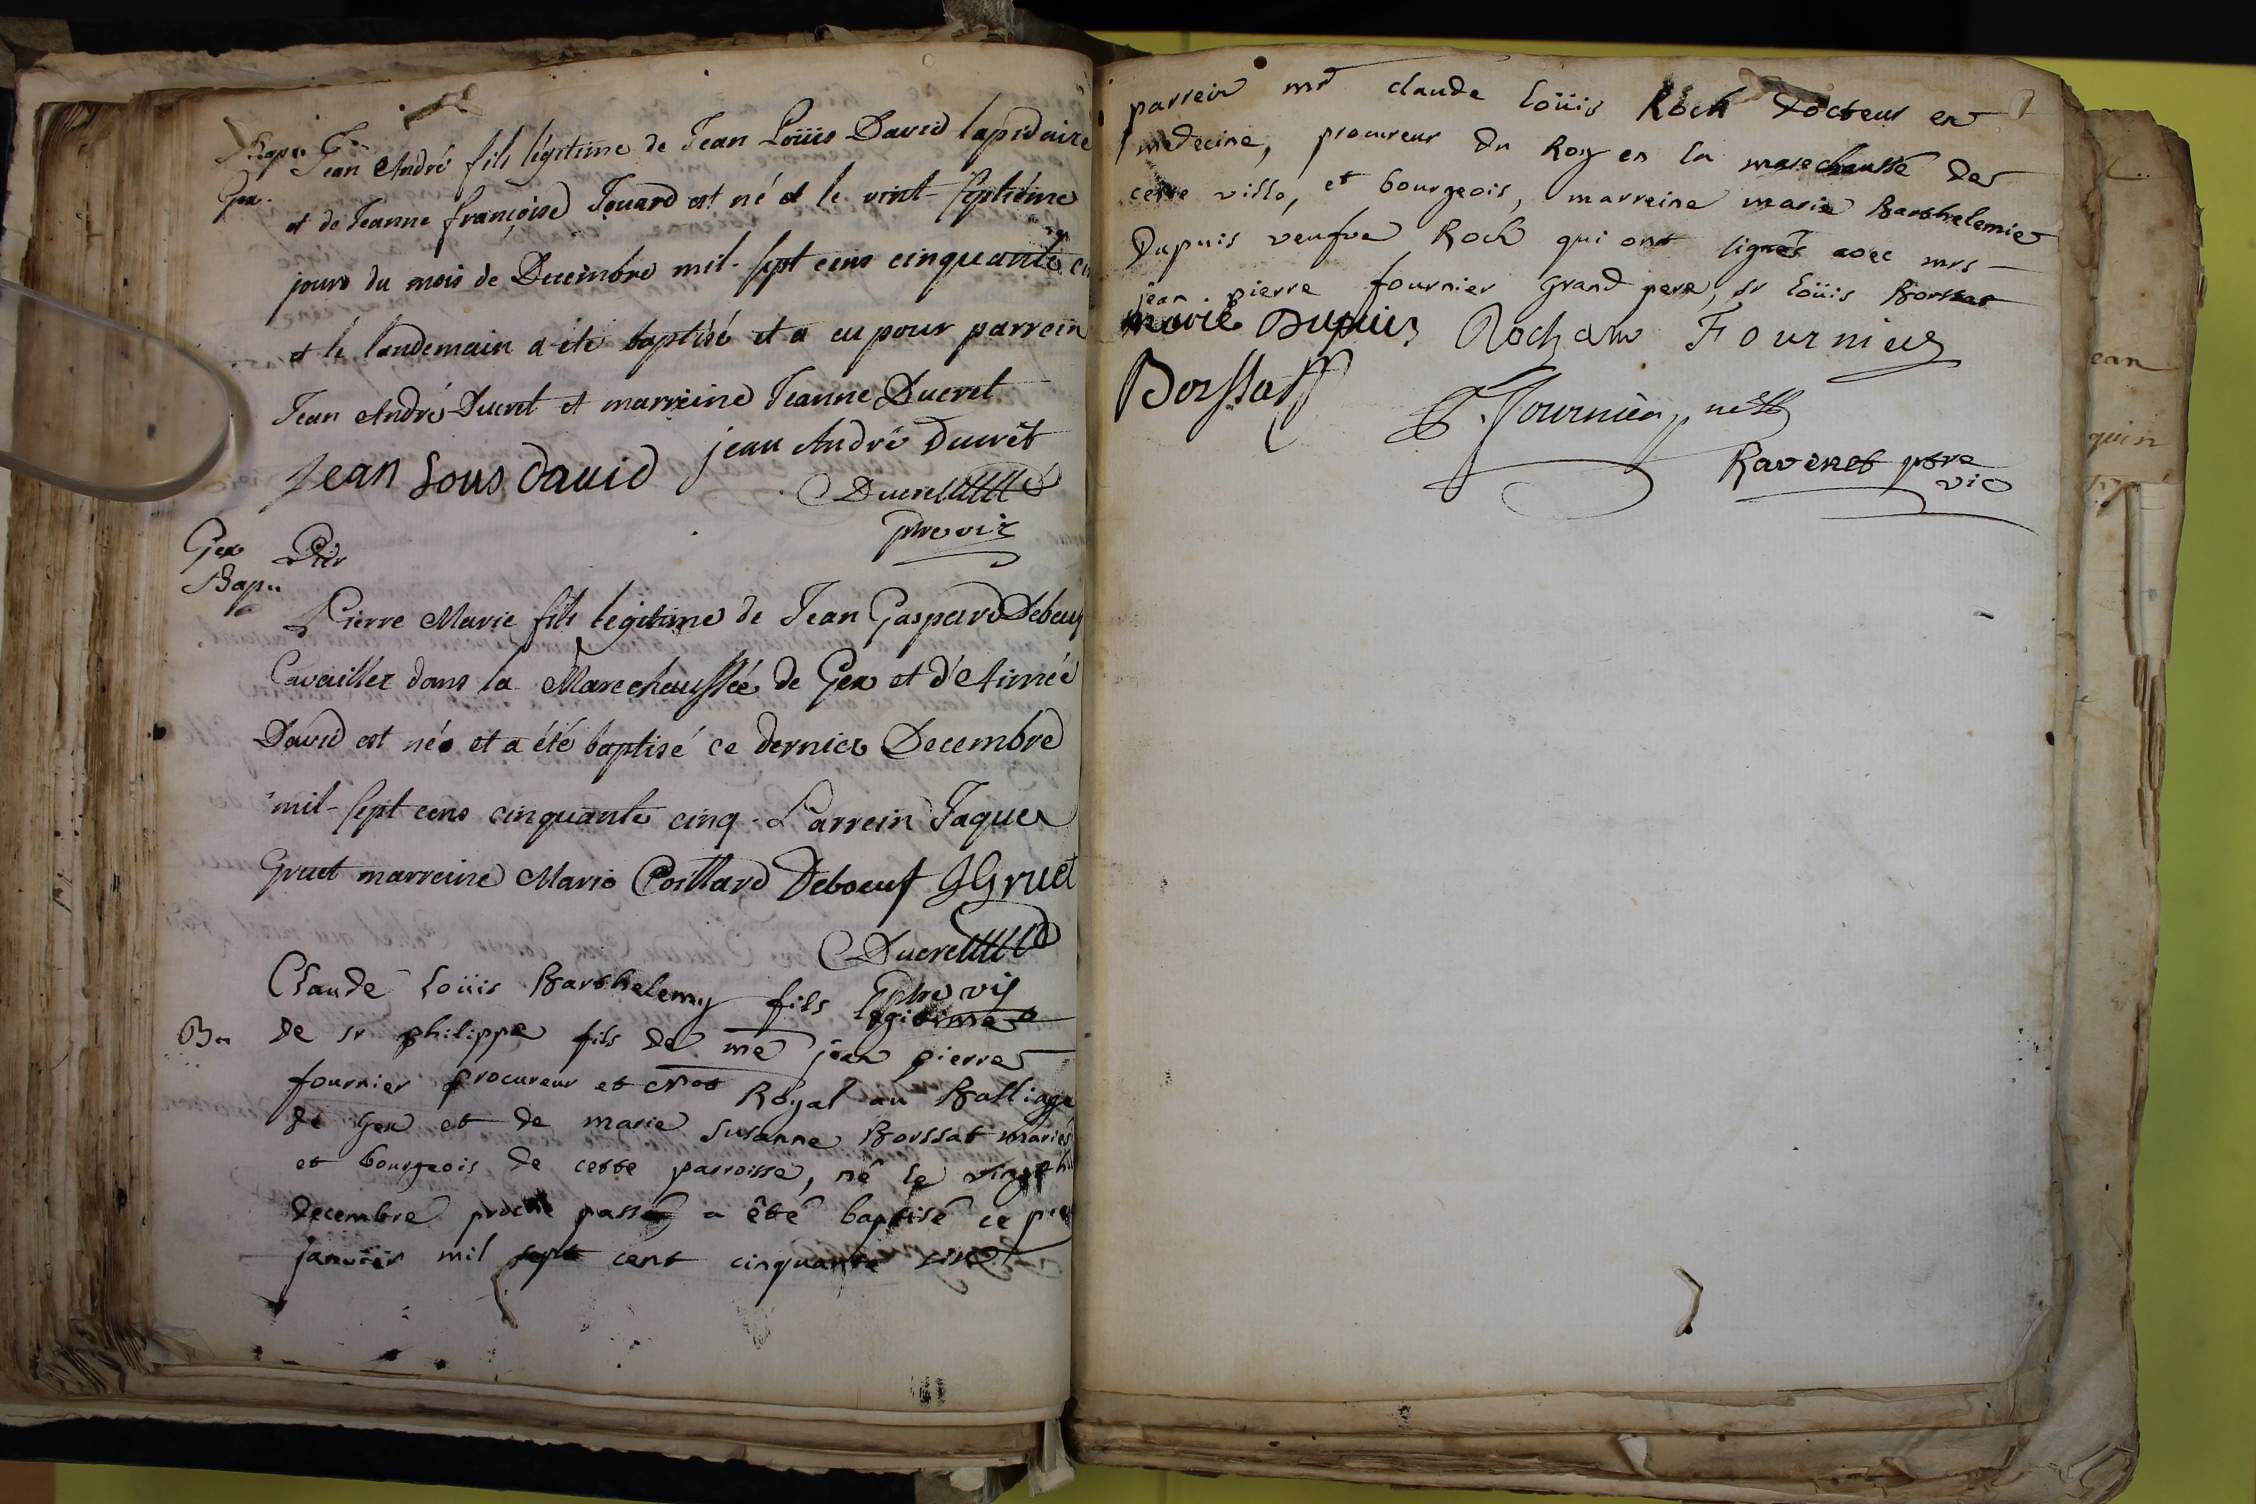 Bap.
Gex.
Jean André fils légitime de Jean Loüis David lapidaire
et de Jeanne françoise Jouard est né et le vint-septiéme
jours du mois de Decembre mil-sept cens cinquante
et le landemain a été baptisé et a eu pour parrein
Jean André Ducret et marreine Jeanne Ducret
jean André Ducrêt
Jean Lous david
Ducret
ptre vic
Gex
Bap..
Pier
Pierre Marie fils legitime de Jean Gaspard Debeuf
Cavaillez dans la Marechaussée de Gex et d'Aimée
David est né et a été baptisé ce dernier Decembre
mil-sept cens cinquante cinq. Parrein Jaques
Gruet marreine Marie Poillard Deboeuf JGruet
Ducret
ptre vic
Claude Loüis Barthelemy fils legitime
B..
de sr philippe fils de me jean pierre
fournier procureur et Royal au Balliage
de Gex et de marie Susanne Borssat mariés
et bourgeois de cette parroisse, né le
decembre proche passé a êté baptisé ce pier
janvier mil sept cent cinquante
parrein mr claude Loüis Roch docteur en
medecine, procureur du Roy en la marechaussé de
cette ville, et bourgeois, marreine marie Barthelemie
Dupuis veufve Roch qui ont signés avec mrs
jean pierre fournier grand pere, sr Loüis Borssat
marie Dupuis Roch Fournier
Borssat
Fournier
Ravenet ptre
vic
ean
quin